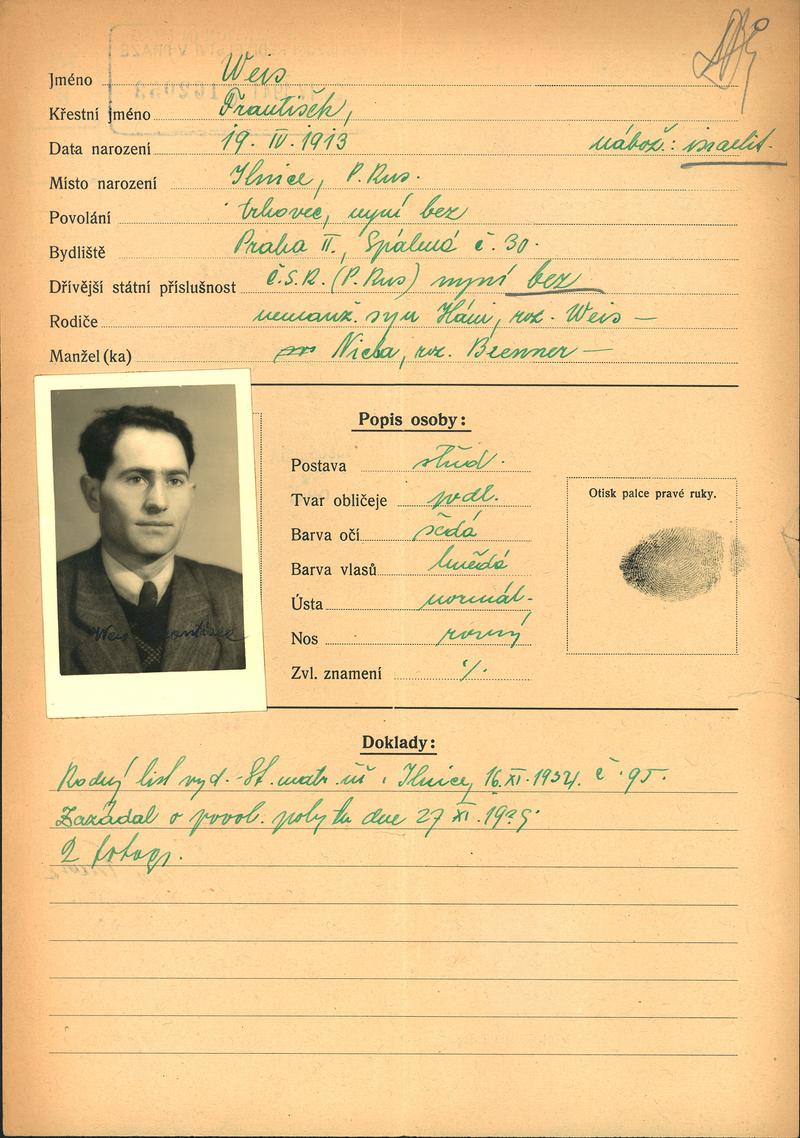 Jméno Weis
Křestní jméno František,
Data narození 19. IV. 1913 nábož.: israelit.
Místo narození Ilnice, P. Rus.
Povolání trhovec, nyní bez
Bydliště Praha II., Spálená č. 30.
Dřívější státní příslušnost Č.S.R. (P. Rus) nyní bez
Rodiče nemanž. syn Háni, roz. Weis —
Manžel (ka) roz. Brenner —
Popis osoby:
Postava střed.
Tvar obličeje podl.
Barva očí šedá
Barva vlasů hnědá
Ústa normál.
Nos rovný
Zvl. znamení ./.
Otisk palce pravé ruky.
Weis František
Doklady:
Rodný list vyd. St. matr. úř. Ilnice, 16. XI. 1934. č. 95.
Zažádal o povol. pobytu dne 27 XI. 1939.
2 fotogr.